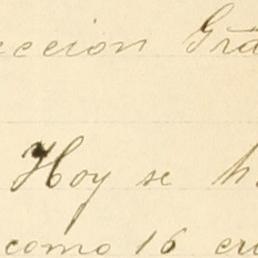 eccion Gra
Hoy se h
como 16 cr